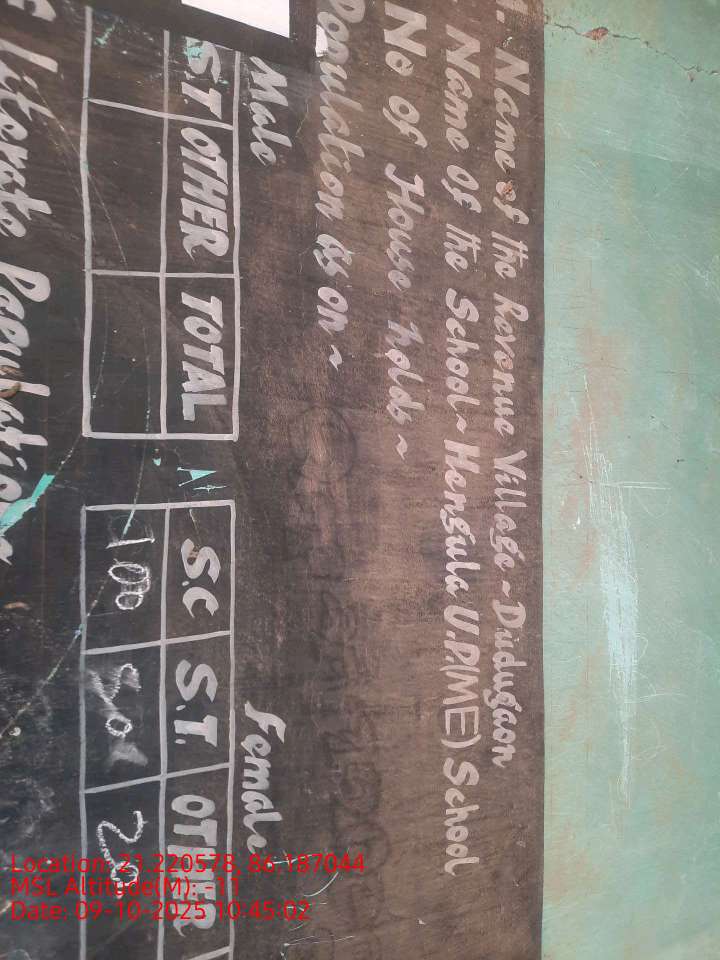 1. Name of the Revenue Village ~ Dudugaon
Name of the School ~ Hengula U.P(ME) School
No of House holds ~
Population as on ~
Male Female
S.T OTHER TOTAL S.C S.T. OTHER
100
Literate Population
Location: 21.220578, 86.187044
MSL Altitude(M): -11
Date: 09-10-2025 10:45:02